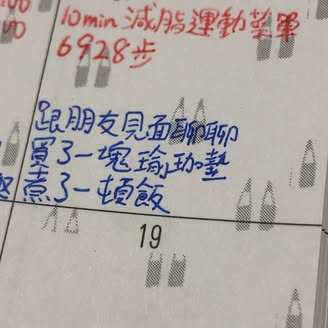 10min 減脂運動菜單
6928步
跟朋友見面聊聊
買了一塊瑜珈墊
煮了一頓飯
19